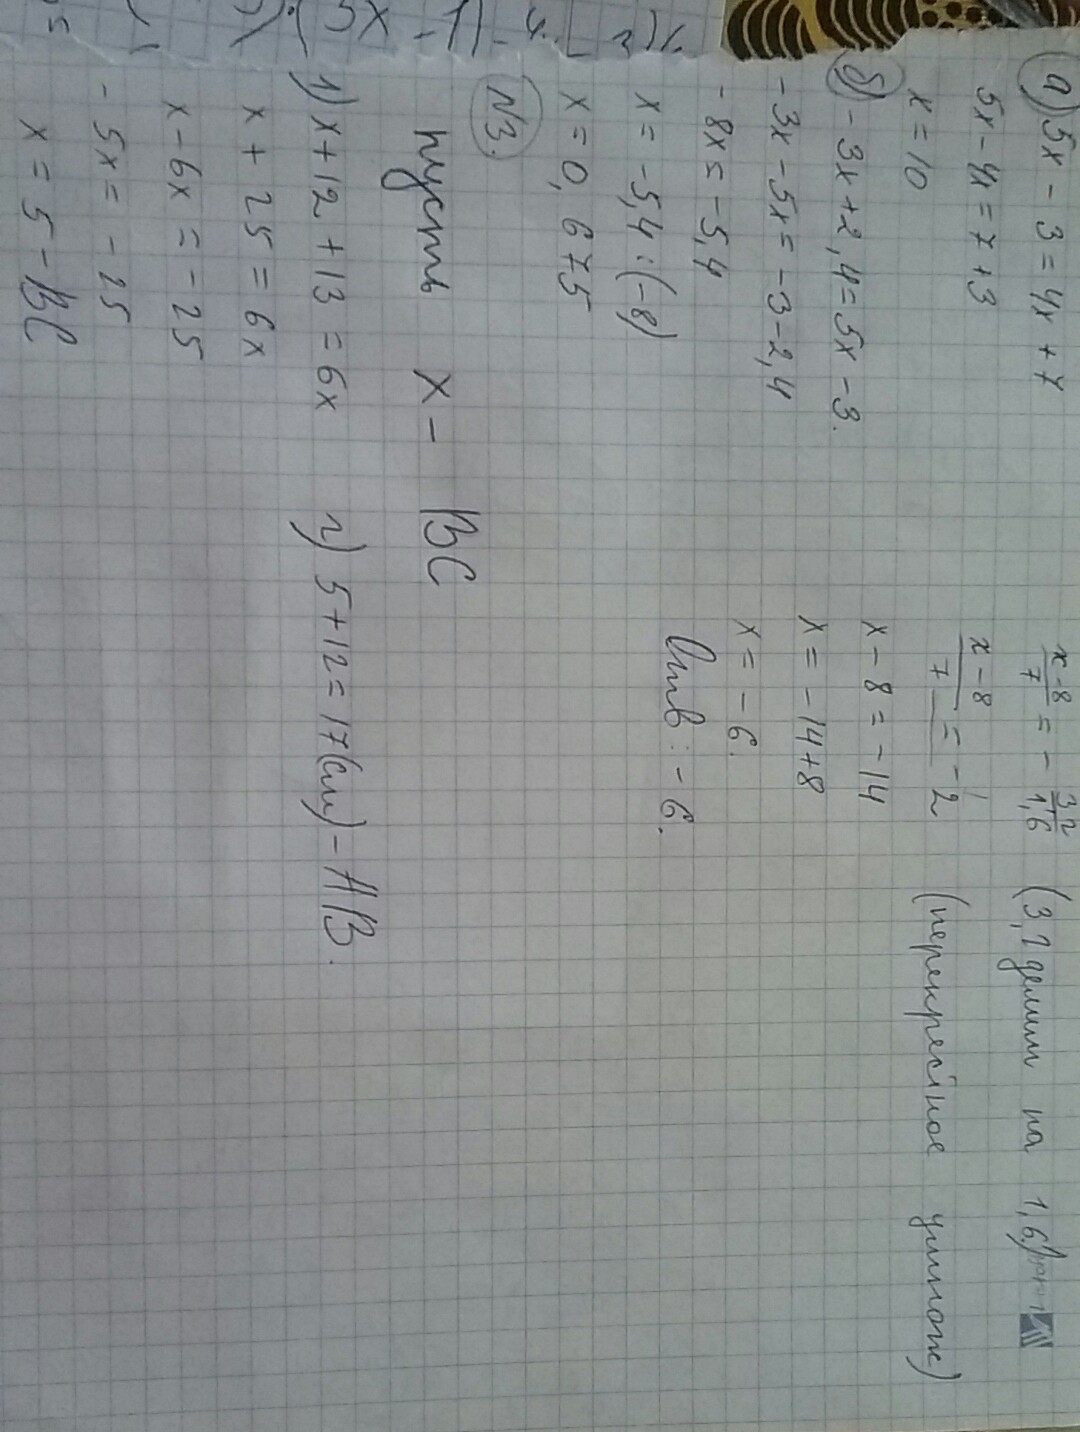 а) 5x - 3 = 4x + 7
5x - 4x = 7 + 3
x = 10
б) - 3x + 2,4 = 5x - 3.
- 3x - 5x = - 3 - 2,4
- 8x = - 5,4
x = -5,4 : (-8)
x = 0,675
x-8/7 = - 3,2/1,6 (3,2 делим на 1,6)
x-8/7 = -2/1 (перекрестное умнож)
x - 8 = - 14
x = - 14 + 8
x = - 6.
Отв: - 6.
№3.
пусть x - BC
1) x + 12 + 13 = 6x
x + 25 = 6x
x - 6x = - 25
- 5x = - 25
x = 5 - BC
2) 5 + 12 = 17(см) - AB.